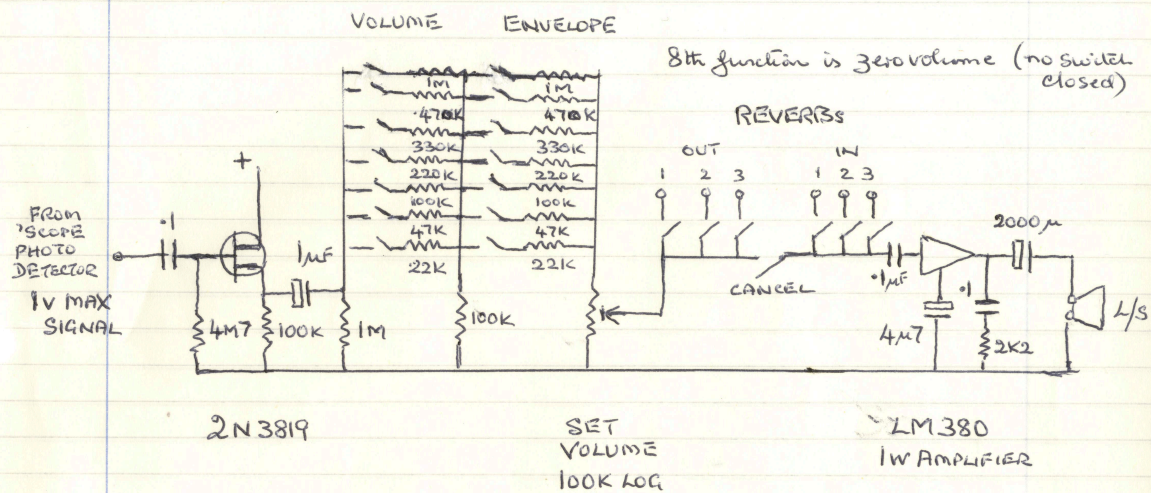 VOLUME ENVELOPE
8th function is zero volume (no switch
closed)
1M 1M
470K 470K
330K 330K
220K 220K
100K 100K
47K 47K
22K 22K
REVERBS
OUT IN
1 2 3 1 2 3
+
FROM
'SCOPE
PHOTO
DETECTOR
1V MAX
SIGNAL
.1
1µF
4M7
100K
1M
100K
CANCEL
.1µF
2000µ
4µ7
.1
2K2
L/S
2N3819
SET
VOLUME
100K LOG
LM380
1W AMPLIFIER